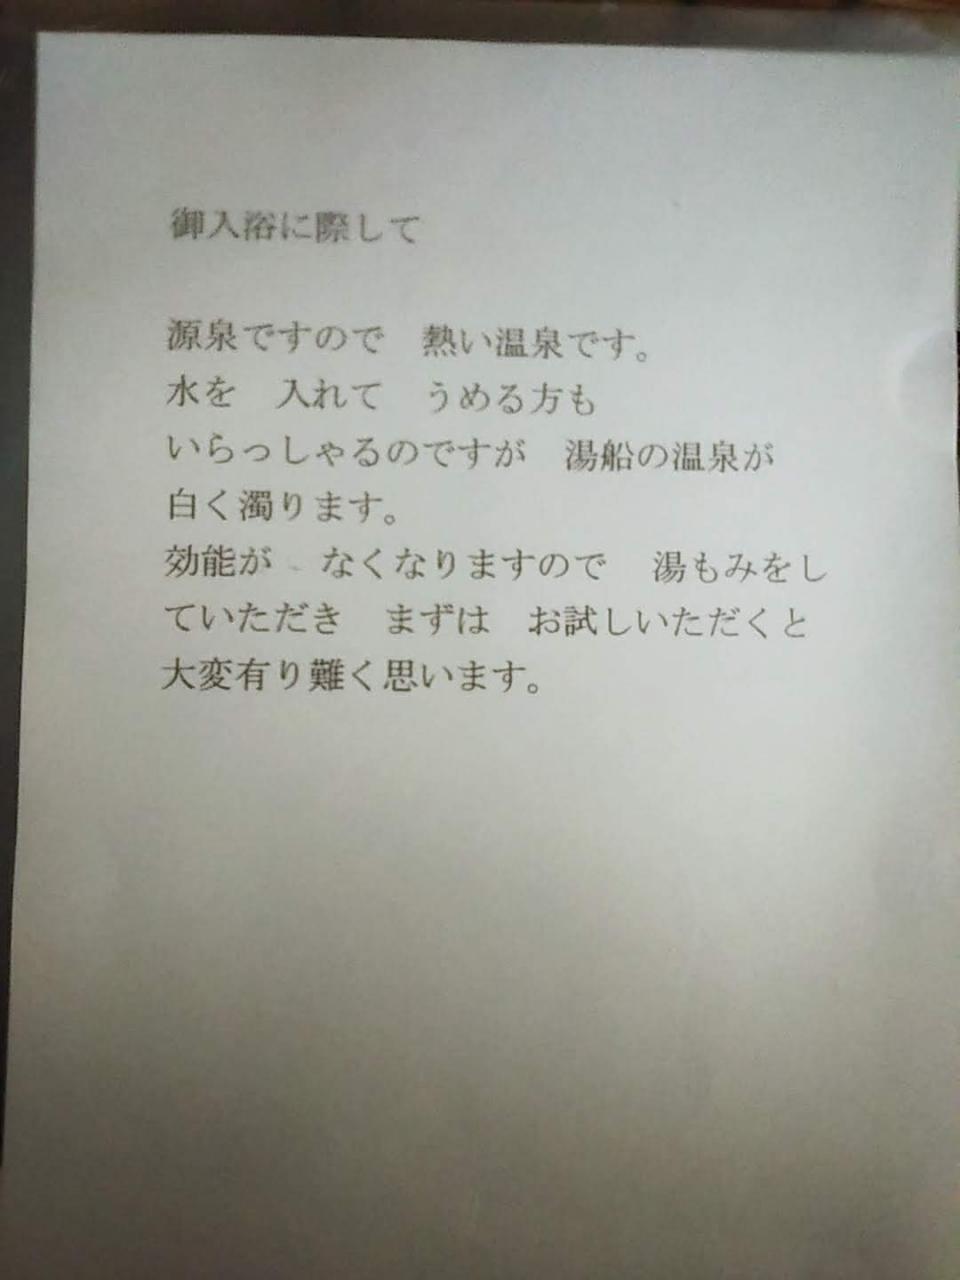 御入浴に際して
源泉ですので　熱い温泉です。
水を　入れて　うめる方も
いらっしゃるのですが　湯船の温泉が
白く濁ります。
効能が　なくなりますので　湯もみをし
ていただき　まずは　お試しいただくと
大変有り難く思います。